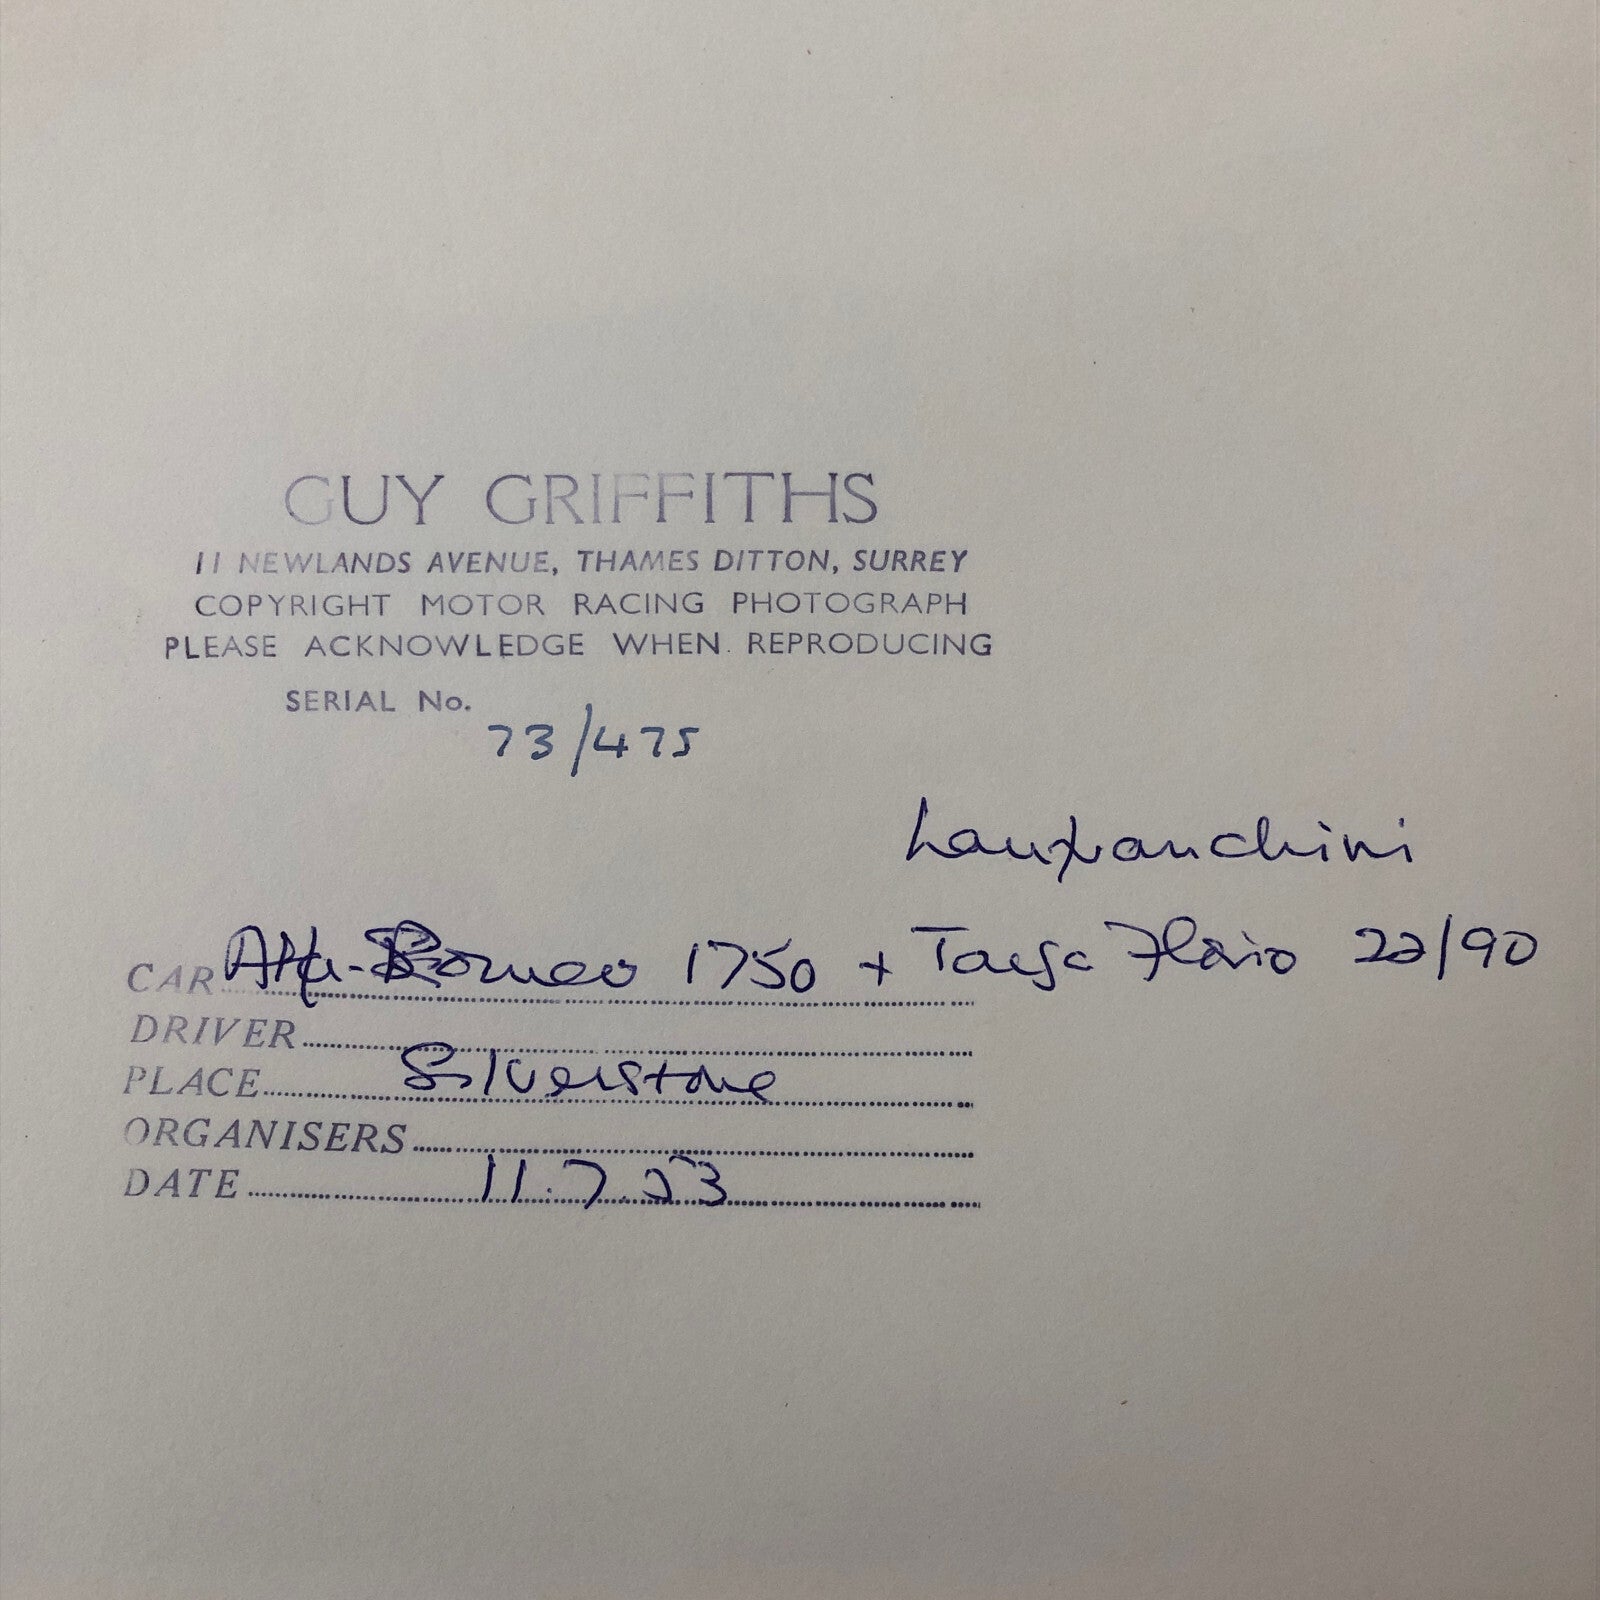 GUY GRIFFITHS
11 NEWLANDS AVENUE, THAMES DITTON, SURREY
COPYRIGHT MOTOR RACING PHOTOGRAPH
PLEASE ACKNOWLEDGE WHEN REPRODUCING
SERIAL No.
73/475
Lanfranchini
CAR Alfa-Romeo 1750 + Targa Florio 22/90
DRIVER
PLACE Silverstone
ORGANISERS
DATE 11.7.